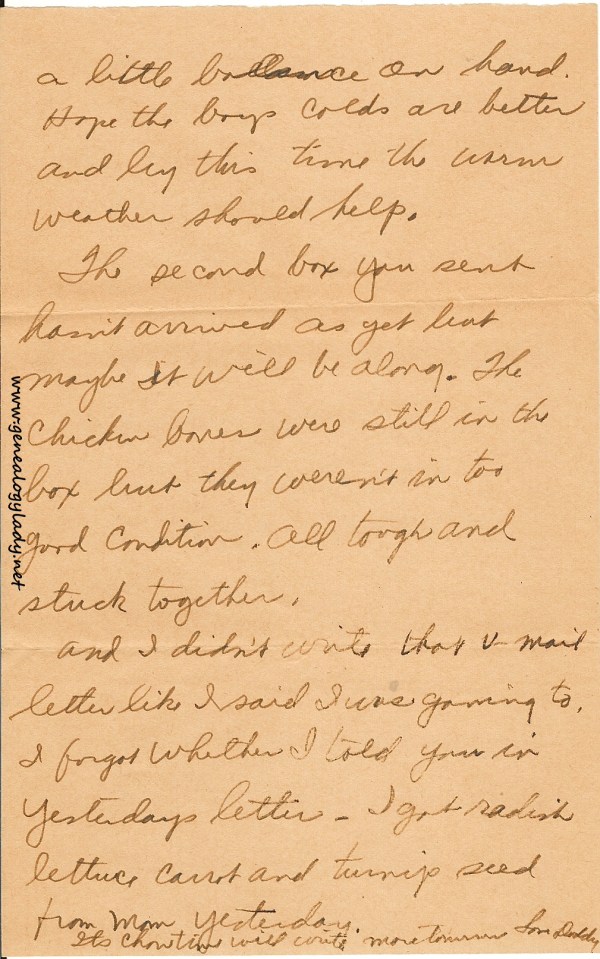 a little balance on hand.
Hope the boys colds are better
and by this time the warm
weather should help.
The second box you sent
hasn't arrived as yet but
maybe it will be along. The
Chicken bones were still in the
box but they weren't in too
good condition. All tough and
stuck together.
And I didn't write that V-mail
letter like I said I was gonning to.
I forgot whether I told you in
yesterdays letter - I got radish
lettuce carrot and turnip seed
from Mom yesterday.
Its chowtime will write more tomorrow Love Daddy
www.genealogylady.net